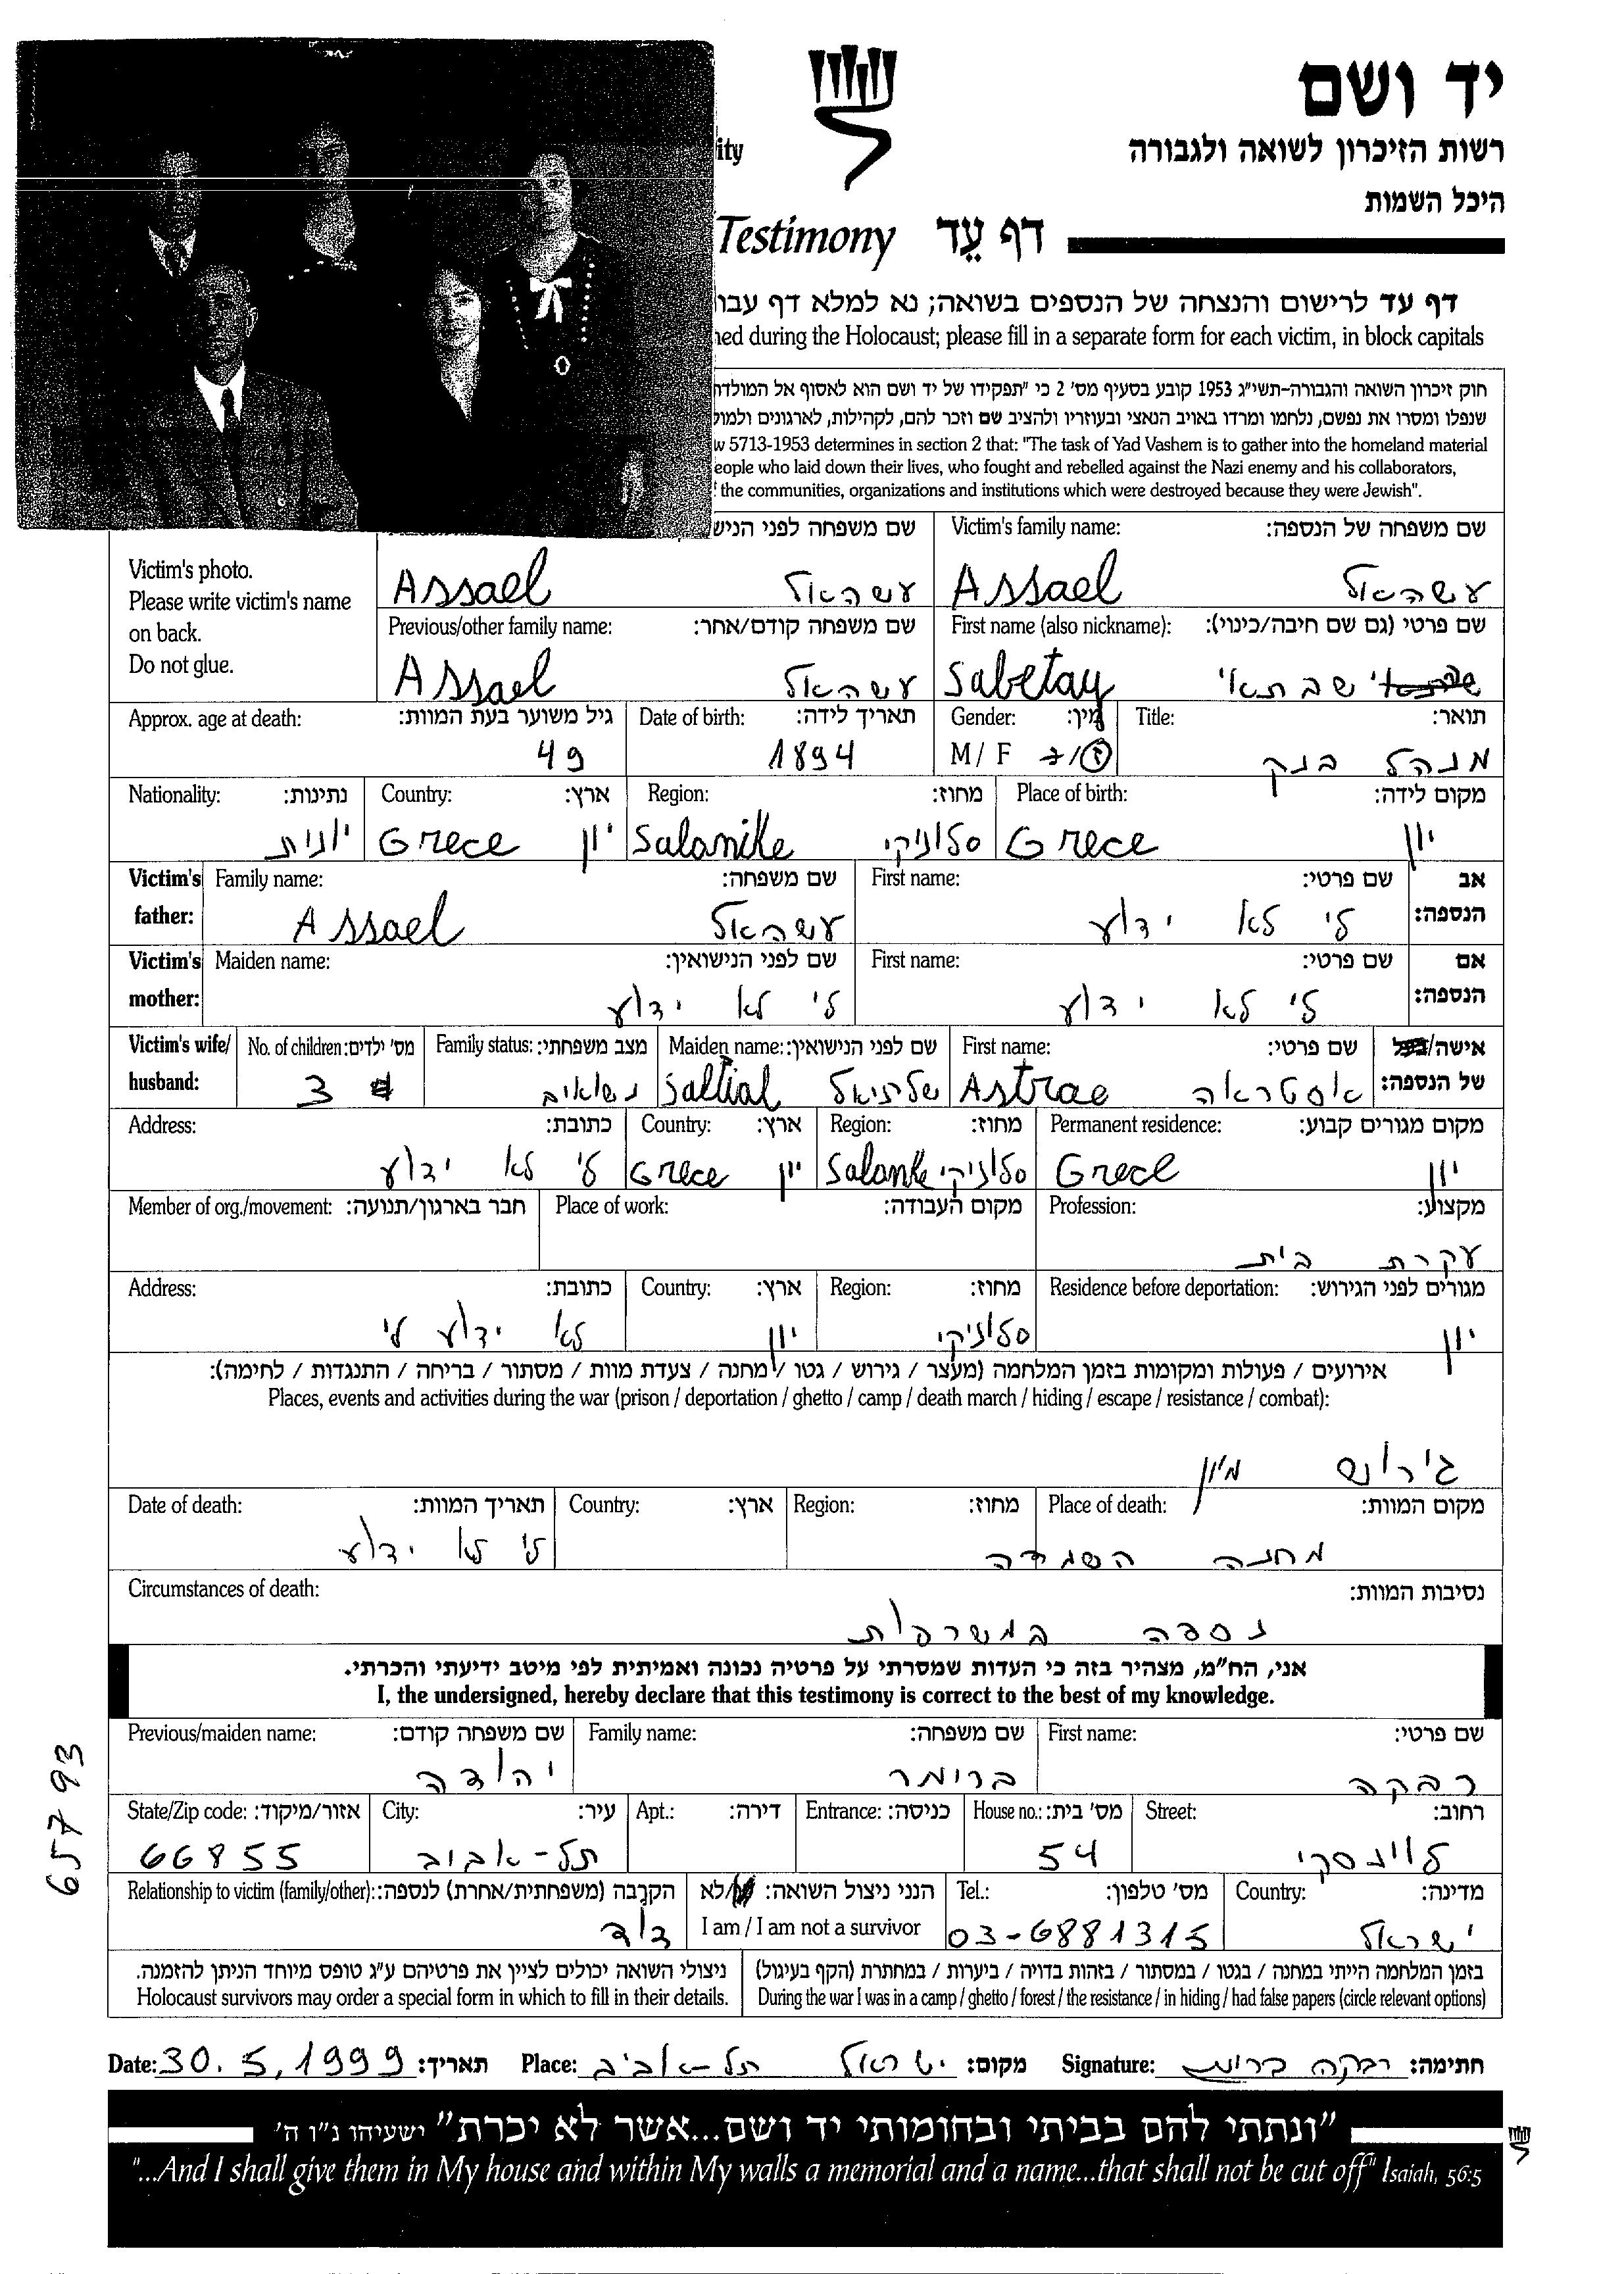 יד ושם
רשות הזיכרון לשואה ולגבורה
היכל השמות
ity
Testimony דף עֵד
דף עד לרישום והנצחה של הנספים בשואה; נא למלא דף עבו
ned during the Holocaust; please fill in a separate form for each victim, in block capitals
חוק זיכרון השואה והגבורה-תשי"ג 1953 קובע בסעיף מס' 2 כי "תפקידו של יד ושם הוא לאסוף אל המולדת
שנפלו ומסרו את נפשם, נלחמו ומרדו באויב הנאצי ובעוזריו ולהציב שם וזכר להם, לקהילות, לארגונים ולמוס
w 5713-1953 determines in section 2 that: "The task of Yad Vashem is to gather into the homeland material
eople who laid down their lives, who fought and rebelled against the Nazi enemy and his collaborators,
the communities, organizations and institutions which were destroyed because they were Jewish".
Victim's family name: שם משפחה של הנספה:
Assael עשהאל
שם משפחה לפני הניש
Assael עשהאל
Victim's photo.
Please write victim's name
on back.
Do not glue.
First name (also nickname): שם פרטי (גם שם חיבה/כינוי):
Sabetay שבתאי
Previous/other family name: שם משפחה קודם/אחר:
Assael עשהאל
Title: תואר:
מנהל בנק
Gender: מין:
M / F ז/נ
Date of birth: תאריך לידה:
1894
Approx. age at death: גיל משוער בעת המוות:
49
Place of birth: מקום לידה:
Grece יון
Region: מחוז:
Salonike סלוניקי
Country: ארץ:
Grece יון
Nationality: נתינות:
יונית
Victim's father: אב הנספה:
First name: שם פרטי:
לי לא ידוע
Family name: שם משפחה:
Assael עשהאל
Victim's mother: אם הנספה:
First name: שם פרטי:
לי לא ידוע
Maiden name: שם לפני הנישואין:
לי לא ידוע
Victim's wife/ husband: אישה/ של הנספה:
First name: שם פרטי:
Astrae אסטראה
Maiden name: שם לפני הנישואין:
Saltial שלתיאל
Family status: מצב משפחתי:
נשואים
No. of children: מס' ילדים:
3
Permanent residence: מקום מגורים קבוע:
Grece יון
Region: מחוז:
Salonike סלוניקי
Country: ארץ:
Grece יון
Address: כתובת:
לי לא ידוע
Profession: מקצוע:
עקרת בית
Place of work: מקום העבודה:
Member of org./movement: חבר בארגון/תנועה:
Residence before deportation: מגורים לפני הגירוש:
יון
Region: מחוז:
סלוניקי
Country: ארץ:
יון
Address: כתובת:
לא ידוע לי
אירועים / פעולות ומקומות בזמן המלחמה (מעצר / גירוש / גטו / מחנה / צעדת מוות / מסתור / בריחה / התנגדות / לחימה):
Places, events and activities during the war (prison / deportation / ghetto / camp / death march / hiding / escape / resistance / combat):
גירוש מיון
Place of death: מקום המוות:
מחנה השמדה
Region: מחוז:
Country: ארץ:
Date of death: תאריך המוות:
לי לא ידוע
Circumstances of death: נסיבות המוות:
נספה במשרפות
אני, הח"מ, מצהיר בזה כי העדות שמסרתי על פרטיה נכונה ואמיתית לפי מיטב ידיעתי והכרתי.
I, the undersigned, hereby declare that this testimony is correct to the best of my knowledge.
First name: שם פרטי:
רבקה
Family name: שם משפחה:
ברומר
Previous/maiden name: שם משפחה קודם:
יהודה
Street: רחוב:
לוינסקי
House no.: מס' בית:
54
Entrance: כניסה:
Apt.: דירה:
City: עיר:
תל-אביב
State/Zip code: אזור/מיקוד:
66855
Country: מדינה:
ישראל
Tel.: מס' טלפון:
03-6881315
הנני ניצול השואה: /לא
I am / I am not a survivor
Relationship to victim (family/other): הקרבה (משפחתית/אחרת) לנספה:
דוד
בזמן המלחמה הייתי במחנה / בגטו / במסתור / בזהות בדויה / ביערות / במחתרת (הקף בעיגול)
During the war I was in a camp / ghetto / forest / the resistance / in hiding / had false papers (circle relevant options)
ניצולי השואה יכולים לציין את פרטיהם ע"ג טופס מיוחד הניתן להזמנה.
Holocaust survivors may order a special form in which to fill in their details.
Date: 30.5.1999 תאריך: Place: ישראל תל-אביב מקום: Signature: רבקה ברומר חתימה:
"ונתתי להם בביתי ובחומותי יד ושם...אשר לא יכרת" ישעיהו נ"ו ה'
"...And I shall give them in My house and within My walls a memorial and a name...that shall not be cut off" Isaiah, 56:5
65793